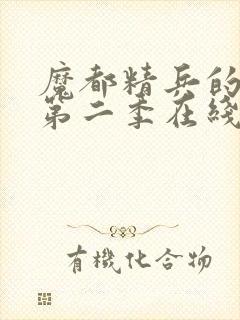 魔都精兵的
第二季在綫
有機化合物